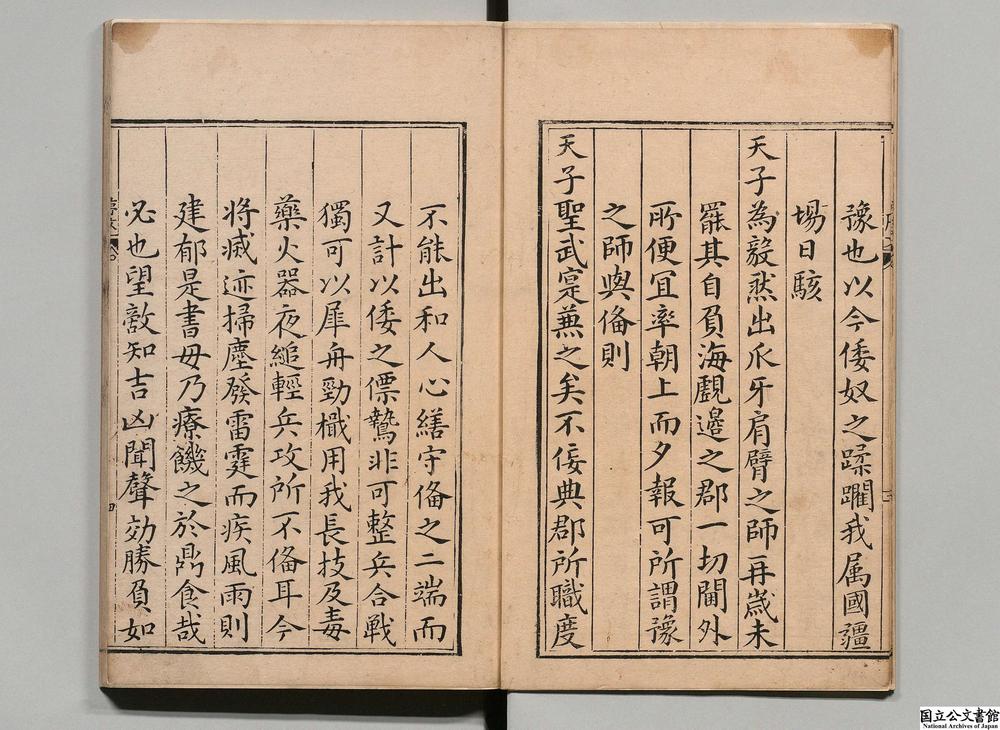 豫也以今倭奴之蹂躙我属國疆
埸日駭
天子為毅然出爪牙肩臂之師再歲未
罷其自負海覻邊之郡一切閫外
所便冝率朝上而夕報可所謂豫
之師與俻則
天子聖武寔蕪之矣不佞典郡所職度
不能出和人心繕守俻之二端而
又計以倭之僄鷙非可整兵合戰
獨可以犀舟勁檝用我長技及毒
藥火器夜縋輕兵攻所不俻耳今
将滅迹掃塵發雷霆而疾風雨則
建郁是書毋乃療饑之於鼎食哉
必也望敵知吉凶聞聲効勝負如
国立公文書館
National Archives of Japan